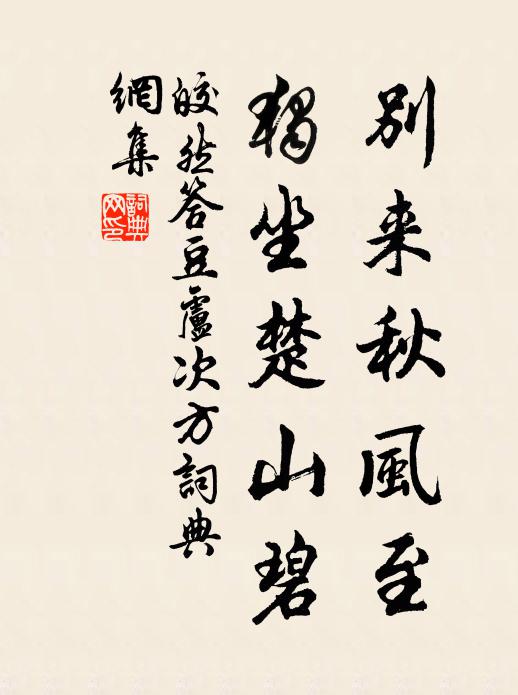 別来秋風至
獨坐楚山碧
皎然答豆盧次方詞典
網集
詞典
网印